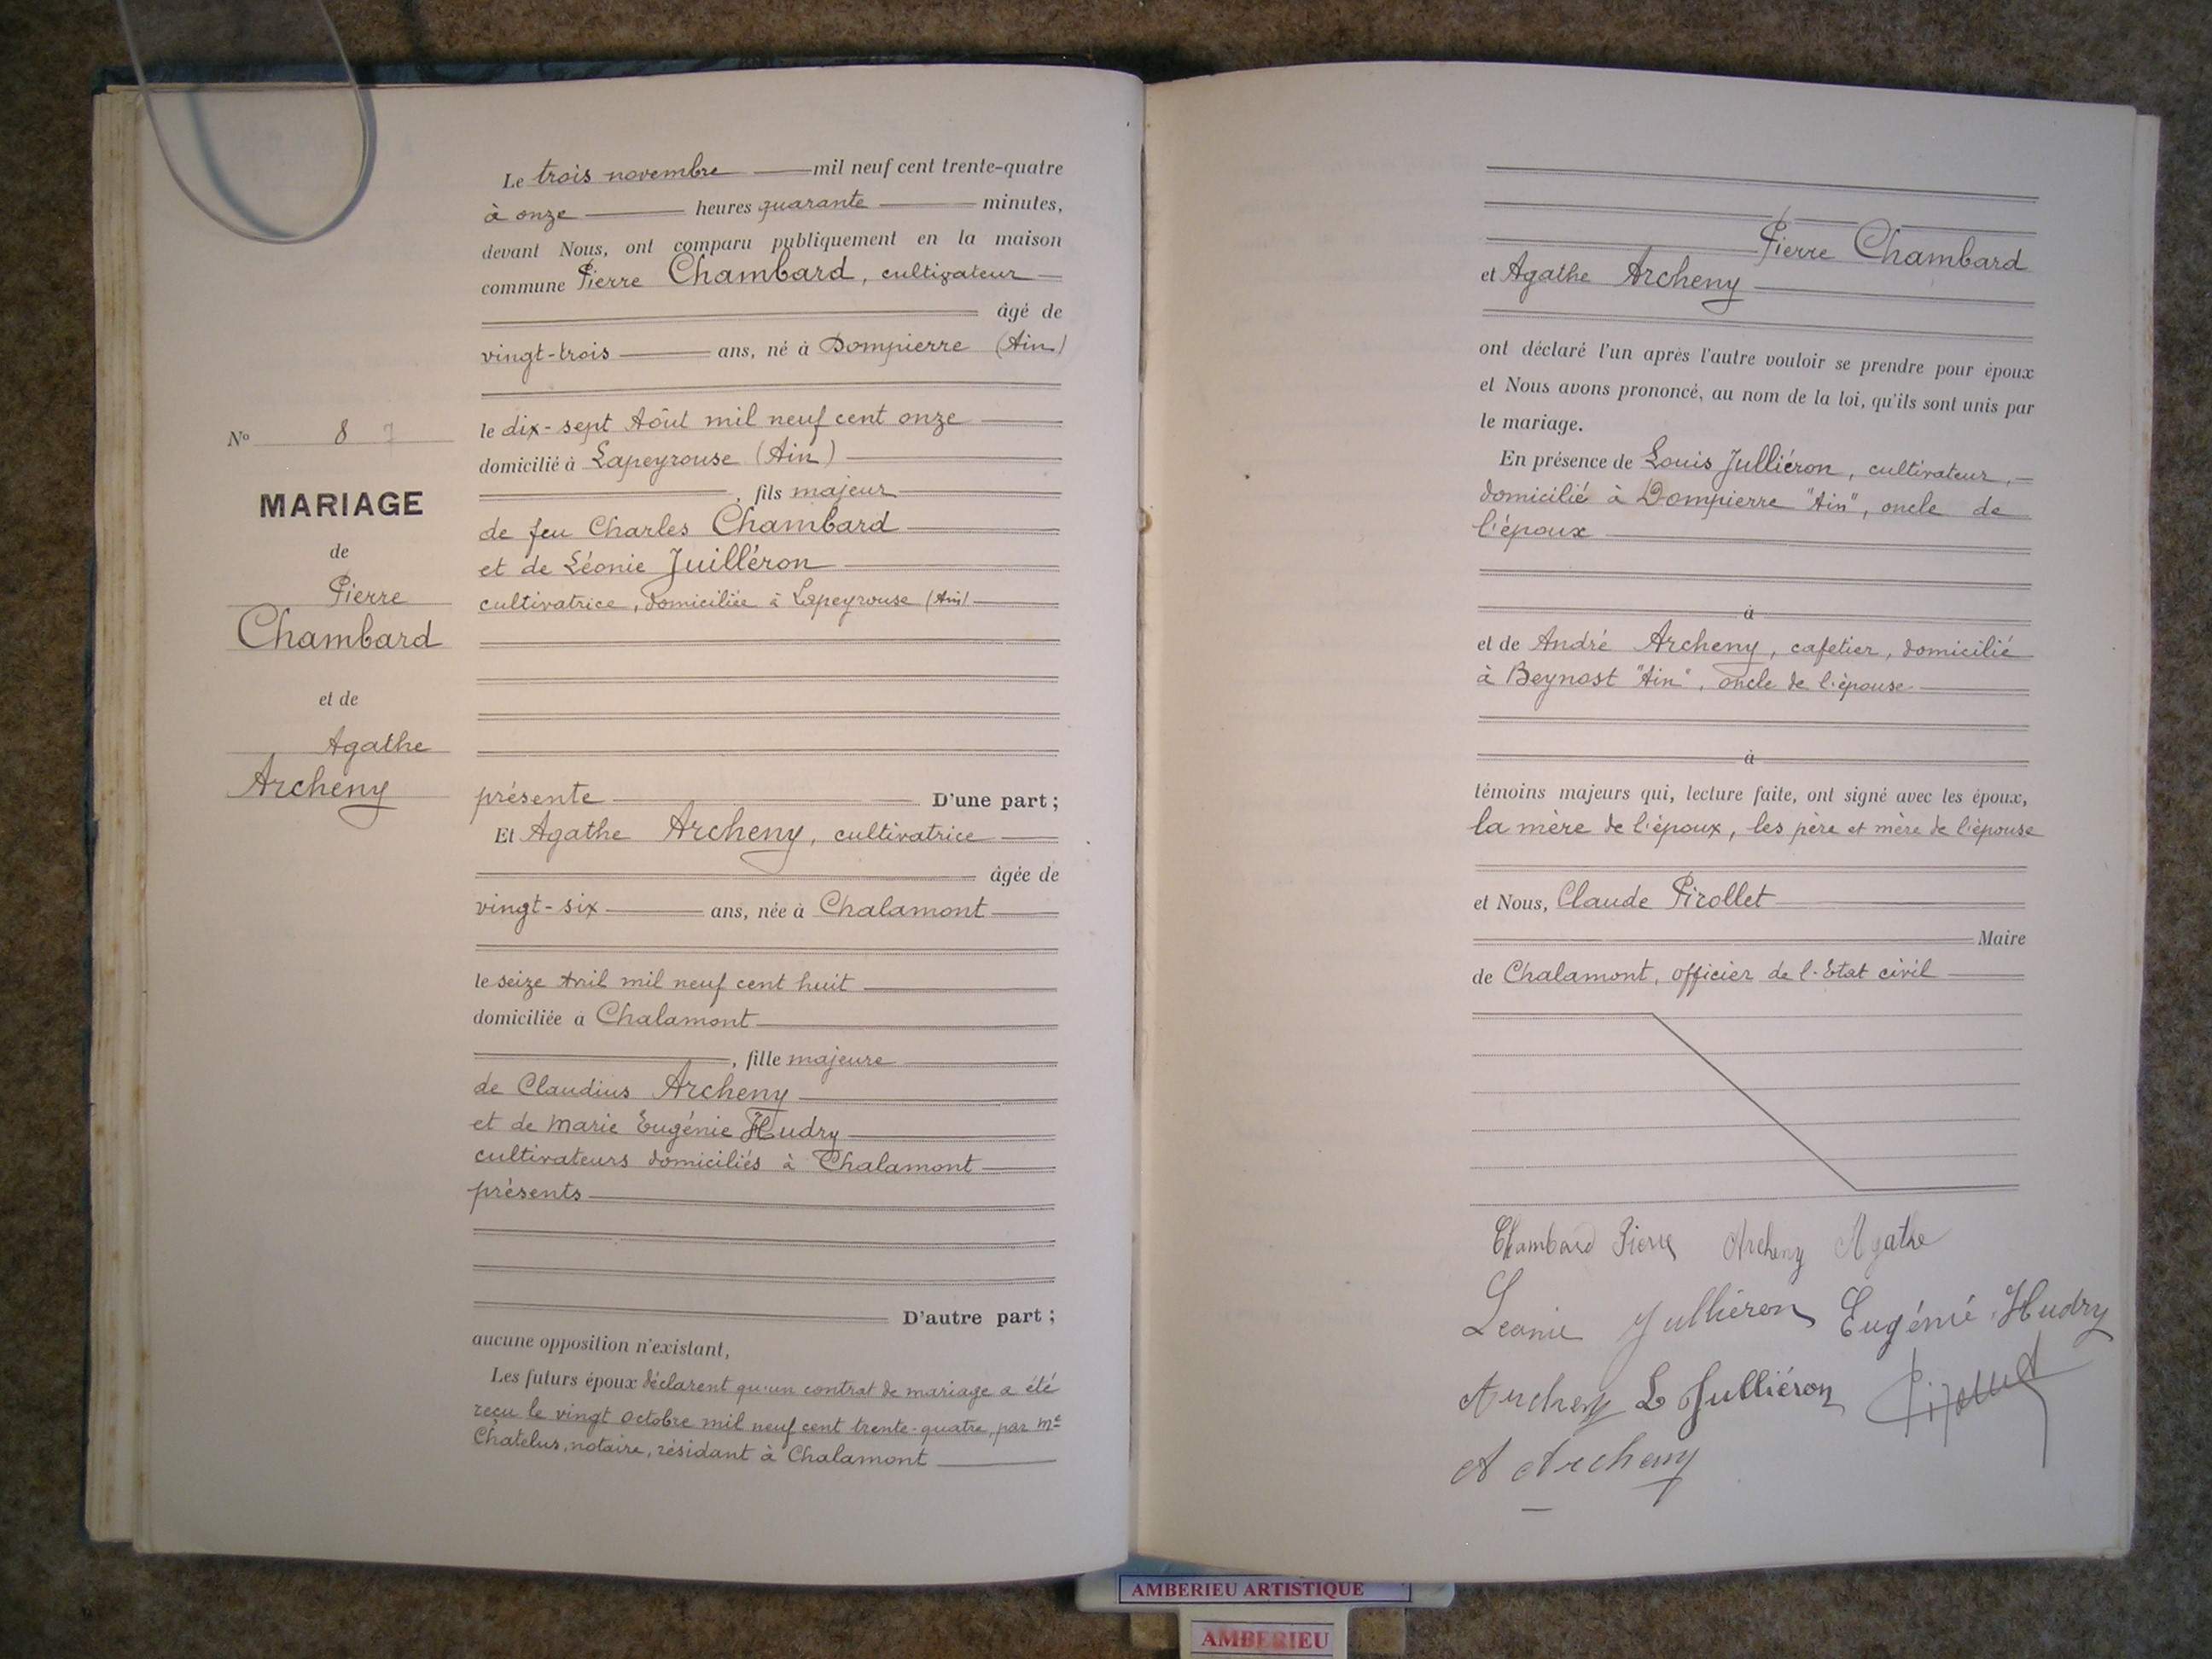 Le trois novembre mil neuf cent trente-quatre
à onze heures quarante minutes,
devant Nous, ont comparu publiquement en la maison
commune Pierre Chambard, cultivateur
âgé de
vingt-trois ans, né à Dompierre (Ain)
le dix-sept Aôut mil neuf cent onze
domicilié à Lapeyrouse (Ain)
, fils majeur
de feu Charles Chambard
et de Léonie Juilléron
cultivatrice, domiciliée à Lapeyrouse (Ain)
présente D'une part ;
Et Agathe Archeny, cultivatrice
âgée de
vingt-six ans, née à Chalamont
le seize Avril mil neuf cent huit
domiciliée à Chalamont
, fille majeure
de Claudius Archeny
et de Marie Eugénie Hudry
cultivateurs domiciliés à Chalamont
présents
D'autre part ;
aucune opposition n'existant,
Les futurs époux déclarent qu'un contrat de mariage a été
reçu le vingt Octobre mil neuf cent trente-quatre, par Me
Chatelus, notaire, résidant à Chalamont
No 8 7
MARIAGE
de
Pierre
Chambard
et de
Agathe
Archeny
Pierre Chambard
et Agathe Archeny
ont déclaré l'un après l'autre vouloir se prendre pour époux
et Nous avons prononcé, au nom de la loi, qu'ils sont unis par
le mariage.
En présence de Louis Julliéron, cultivateur,
domicilié à Dompierre "Ain", oncle de
l'époux
à
et de André Archeny, cafetier, domicilié
à Beynost "Ain", oncle de l'épouse
à
témoins majeurs qui, lecture faite, ont signé avec les époux,
la mère de l'époux, les père et mère de l'épouse
et Nous, Claude Pirollet
Maire
de Chalamont, officier de l'Etat civil
Chambard Pierre Archeny Agathe
Leonie Julliéron Eugénie Hudry
Archeny L Julliéron Pirollet
A Archeny
AMBERIEU ARTISTIQUE
AMBERIEU